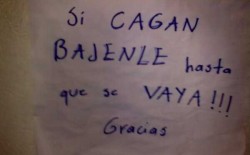 Si CAGAN
BAJENLE hasta
que se VAYA!!!
Gracias